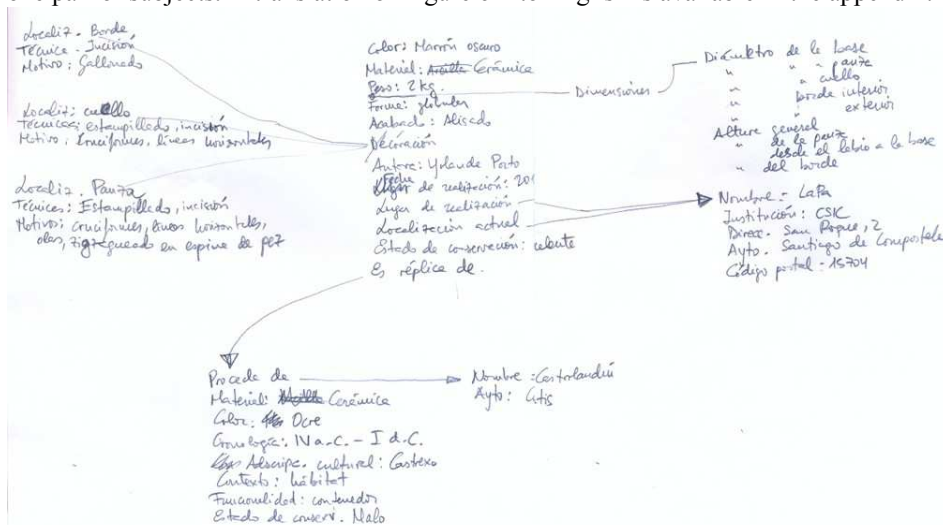 Localiz. Borde
Técnica. Incisión
Motivo: Gallonado
Localiz: cuello
Técnicas: estampillado, incisión
Motivo, Cruciformes, líneas horizontales
Localiz. Panza
Técnicas: Estampillado, incisión
Motivos: cruciformes, líneas horizontales,
olas, zigzagueado en espina de pez
Color: Marrón oscuro
Material: Arcilla Cerámica
Peso: 2 kg.
Forma: globular
Acabado: Alisado
Decoración
Autora: Yolanda Porto
Fecha de realización: 201
Lugar de realización
Localización actual
Estado de conservación:
Es réplica de.
Dimensiones
Diámetro de la base
" " panza
" " cuello
" borde interior
" " exterior
Altura general
" de la panza
" desde el labio a la base
" del borde
Nombre: LaPa
Institución: CSIC
Direcc. San Roque, 2
Ayto. Santiago de Compostela
Código postal: 15704
Procede de
Material: Cerámica
Color: Ocre
Cronología: IV a.C. - I d.C.
Adscripc. cultural: Castrexo
Contexto: hábitat
Funcionalidad: contenedor
Estado de conserv. Malo
Nombre: Castrolandín
Ayto: